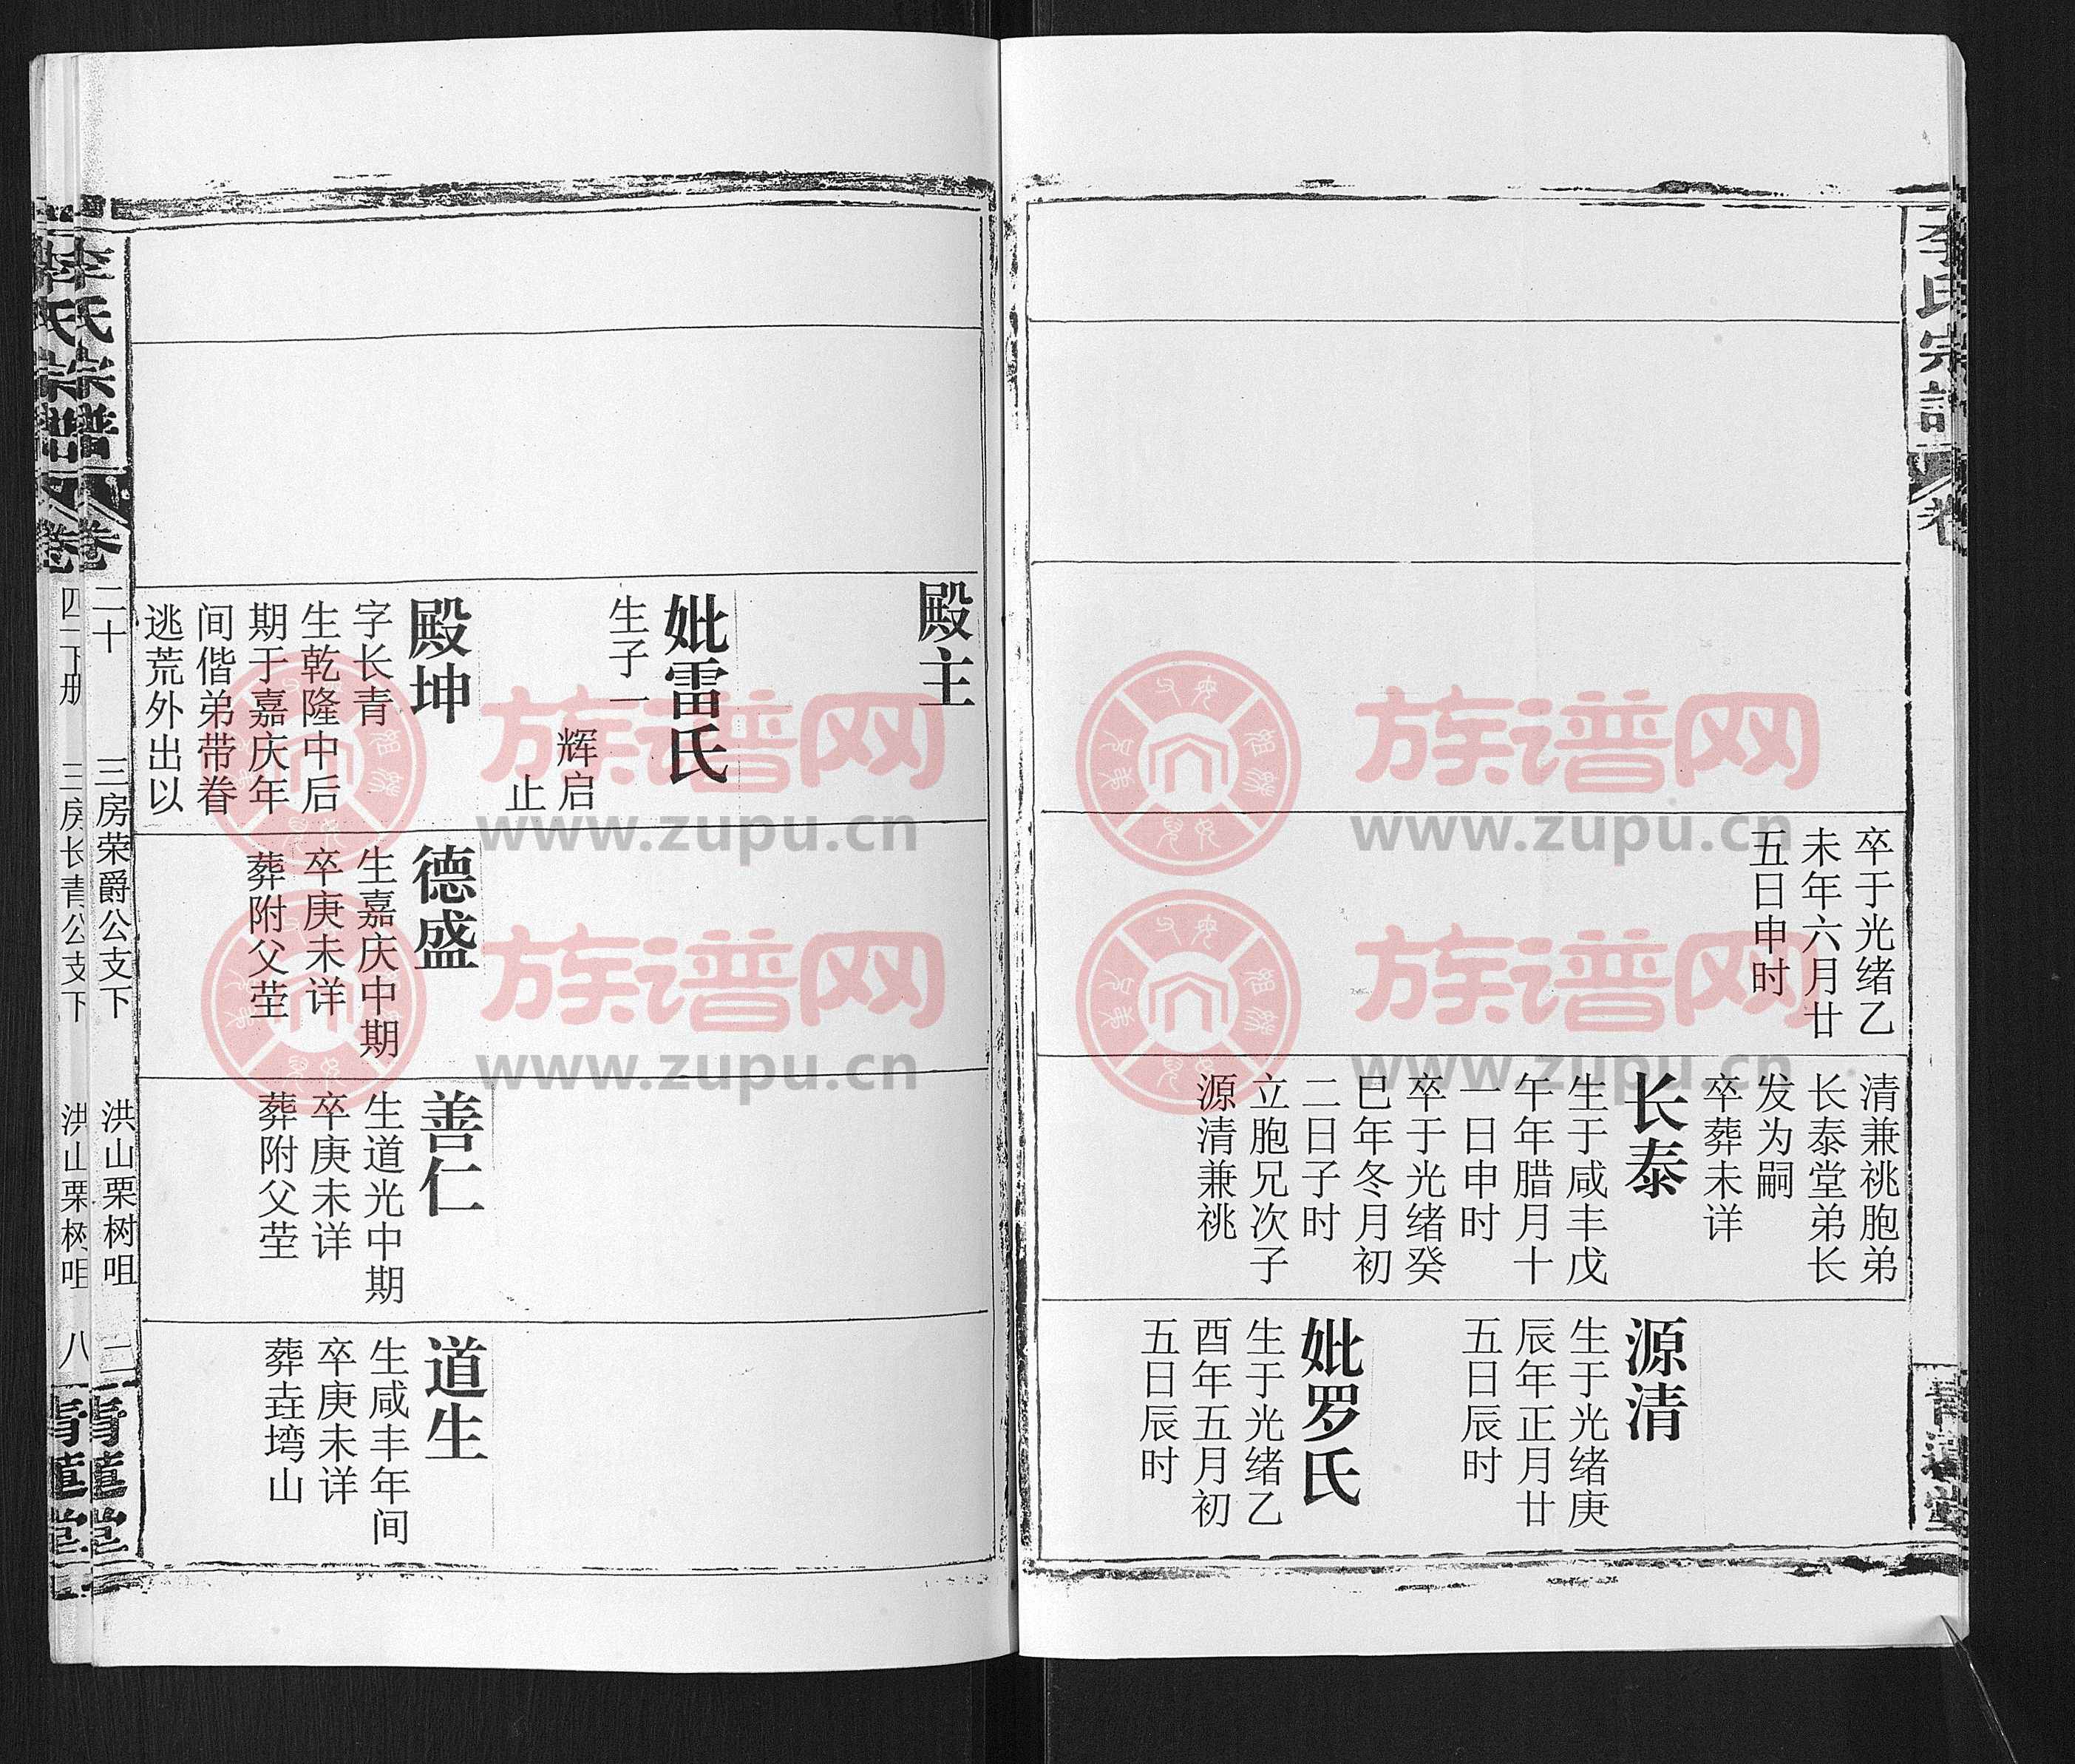 李氏宗谱
卷
卒于光绪乙
未年六月廿
五日申时
清兼祧胞弟
长泰堂弟长
发为嗣
卒葬未详
长泰
生于咸丰戊
午年腊月十
一日申时
卒于光绪癸
巳年冬月初
二日子时
立胞兄次子
源清兼祧
源清
生于光绪庚
辰年正月廿
五日辰时
妣罗氏
生于光绪乙
酉年五月初
五日辰时
殿主
妣雷氏
生子一
辉启
止
殿坤
字长青
生乾隆中后
期于嘉庆年
间偕弟带眷
逃荒外出以
德盛
生嘉庆中期
卒庚未详
葬附父茔
善仁
生道光中期
卒庚未详
葬附父茔
道生
生咸丰年间
卒庚未详
葬垚塆山
李氏宗谱
卷
二十
三房荣爵公支下
洪山栗树咀
二
青莲堂
李氏宗谱
卷
四下册
三房长青公支下
洪山栗树咀
八
青莲堂
族谱网
www.zupu.cn
族谱网
www.zupu.cn
族谱网
www.zupu.cn
族谱网
www.zupu.cn